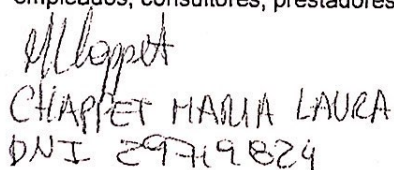 empleados, consultores, prestadores
CHIAPPET MARIA LAURA
DNI 29719824